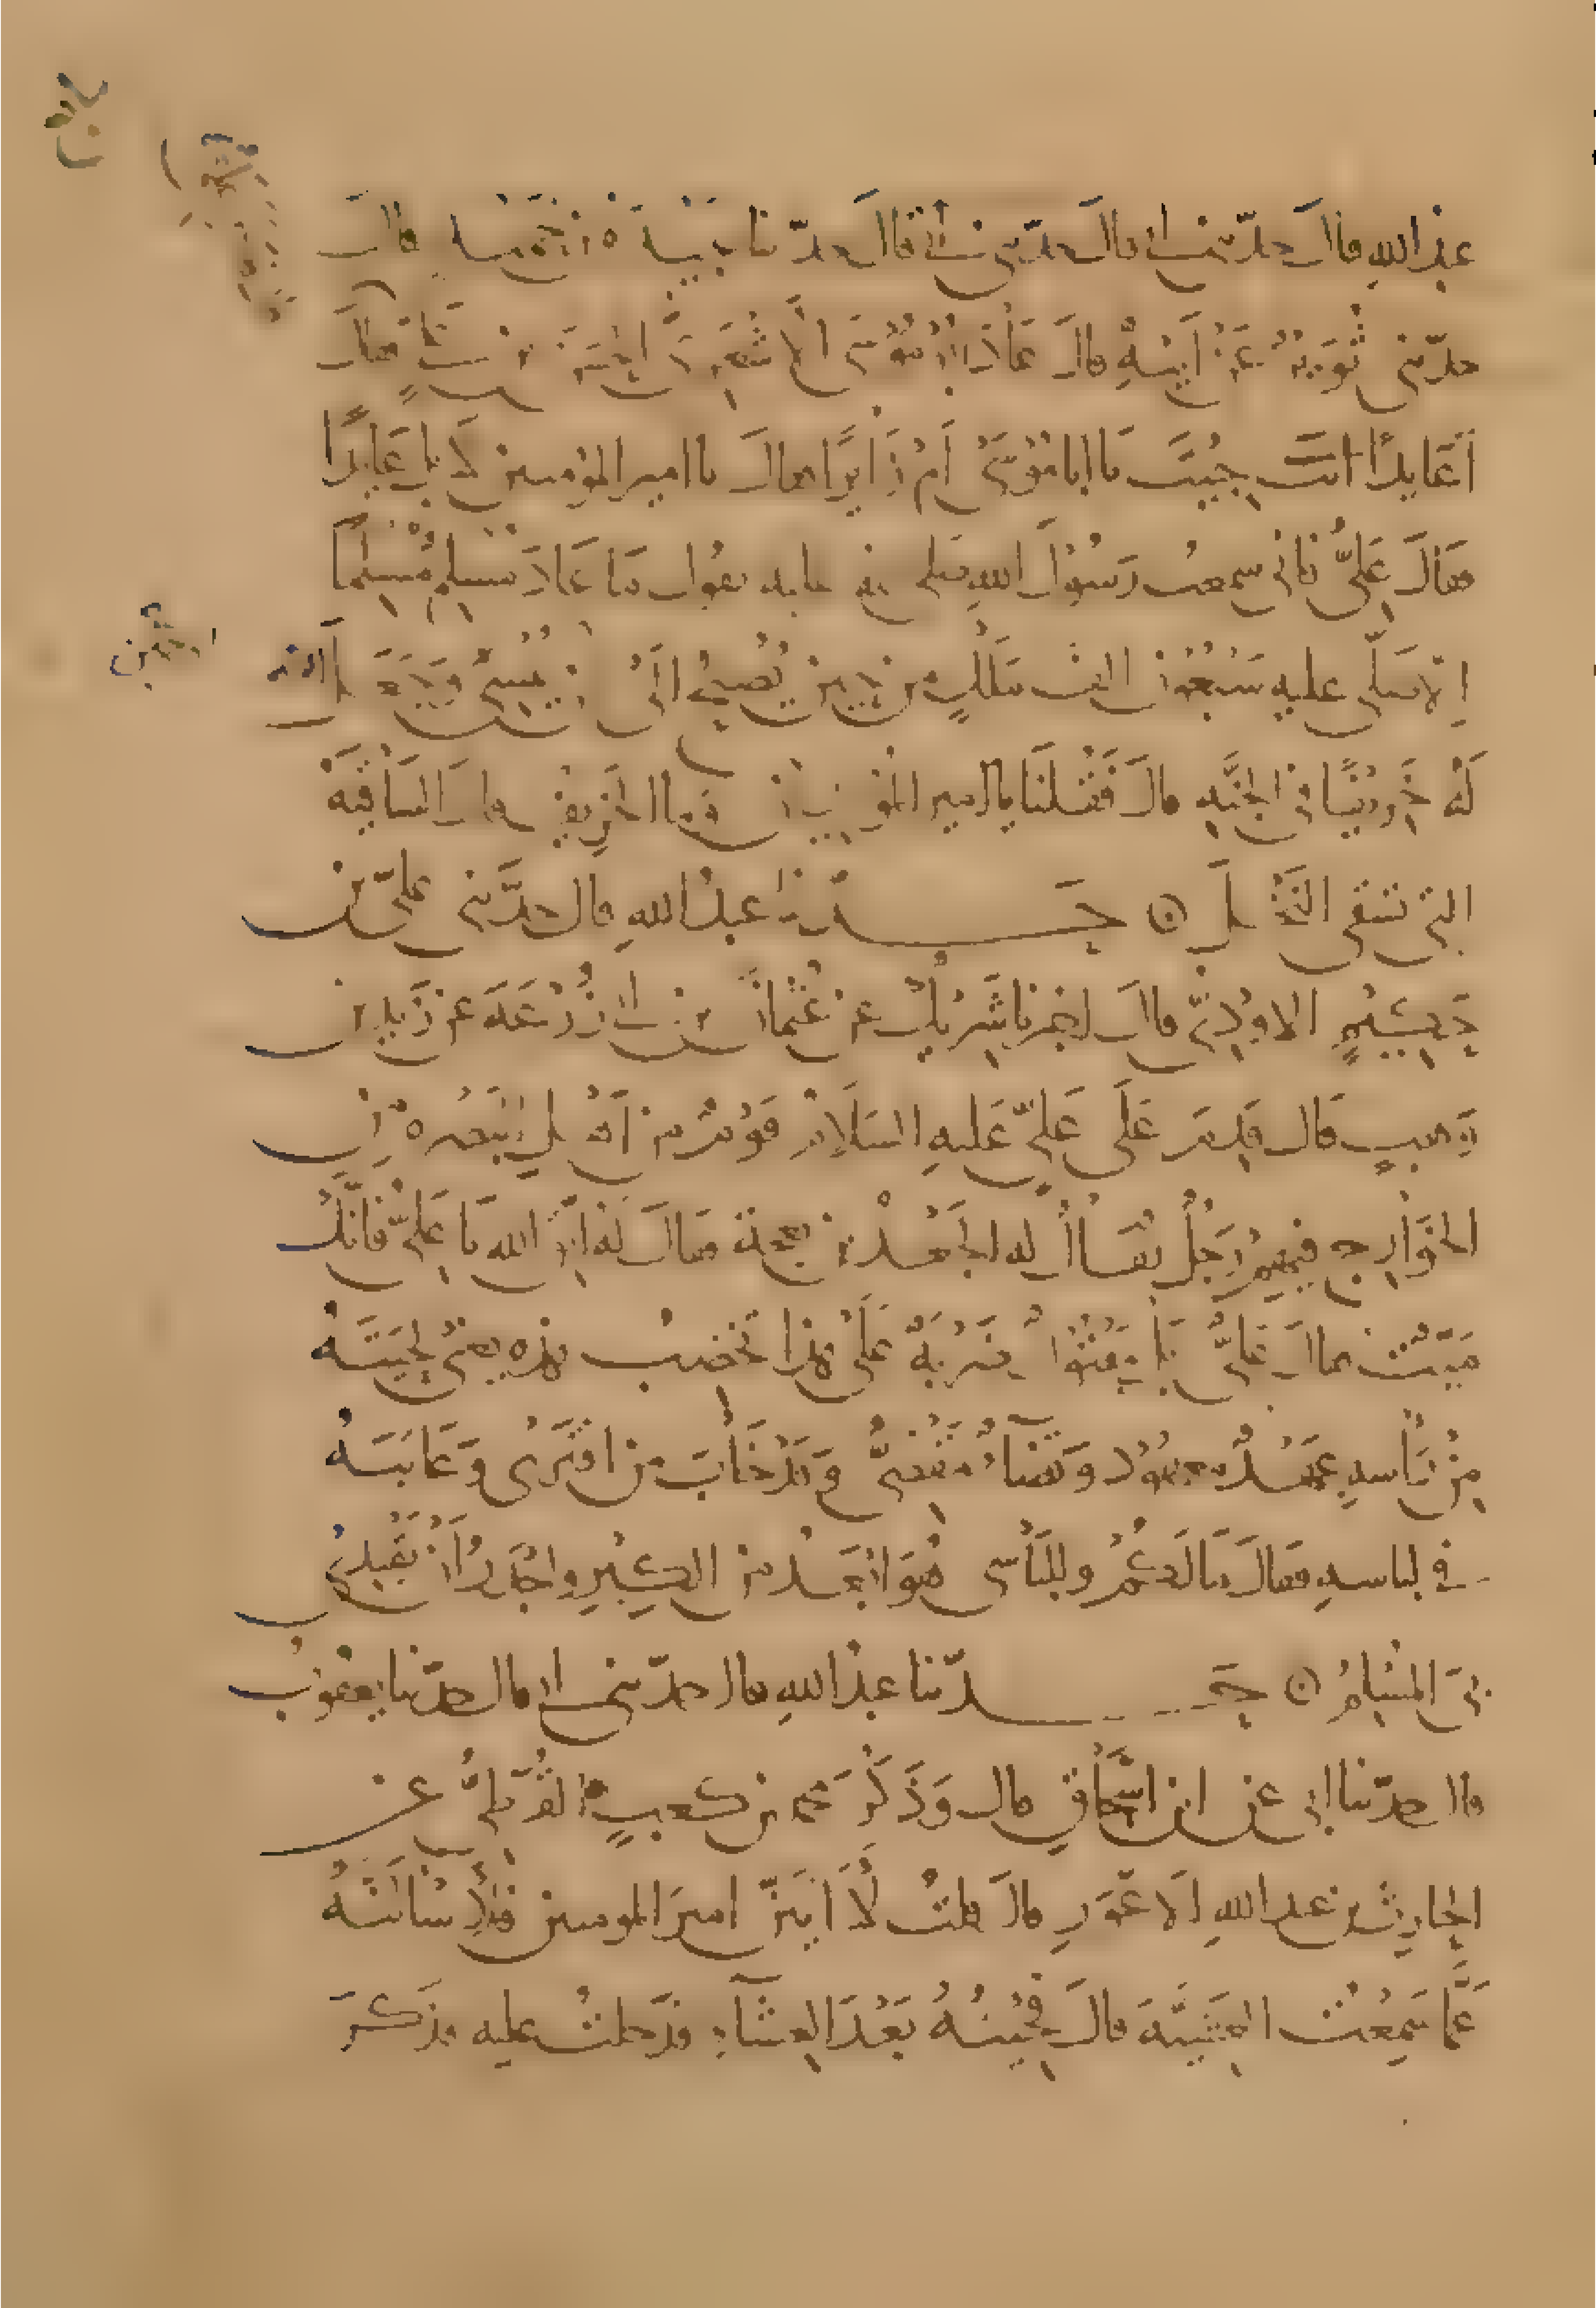 عبد الله قال حدثني ابي قال حدثني ابي قال حدثنا عبيدة بن حميد قال
حدثني ثوير عن أبيه قال عاد ابو موسى الاشعري الحسن بن علي فقال
أعايدا انت جيت يا ابا موسى أم زايرا فقال يا امير المؤمنين لا بل عايدا
فقال علي فاني سمعت رسول الله صلى الله عليه يقول ما عاد مسلم مسلما
الا صلى عليه سبعون الف ملك من حين يصبح الى ان يمسي وجعل الله
له خريفا في الجنه قال فقلنا يا امير المؤمنين وما الخريف قال الساقيه
التي تسقي النخل ۞ حدثنا عبد الله قال حدثني علي بن
حكيم الاودي قال اخبرنا شريك عن عثمان بن ابي زرعه عن زيد بن
وهب قال قدم على علي عليه السلام قوم من أهل البصره من
الخوارج فيهم رجل يقال له الجعد بن بعجة فقال له اتق الله يا علي فانك
ميت فقال علي بل مقتول ضربة على هذا تخضب هذه يعني لحيته
من راسه عهد معهود وقضاء مقضي وقد خاب من افترى وعاتبه
في لباسه فقال ما لكم وللباسي هو ابعد من الكبر واجدر أن يقتدي
بي المسلم ۞ حدثنا عبد الله قال حدثني ابي قال حدثنا يعقوب
قال حدثنا ابي عن ابن اسحاق قال وذكر محمد بن كعب القرظي عن
الحارث بن عبد الله الاعور قال قلت لأاتين امير المومنين فلأسألنه
عما سمعت العشيه قال فجيته بعد العشاء فدخلت عليه فذكر